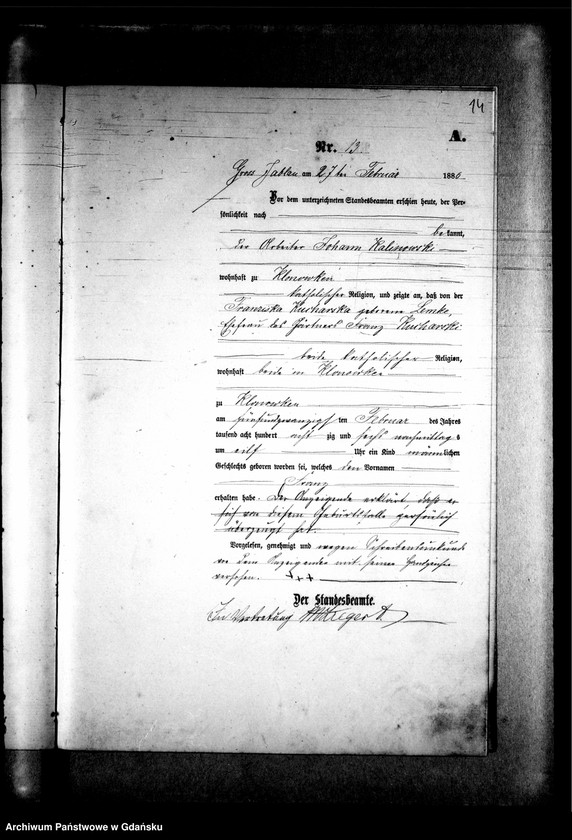 14
A.
Nr. 13
Gross Jablau am 27ten Februar 1880
Vor dem unterzeichneten Standesbeamten erschien heute, der Per-
sönlichkeit nach
bekannt,
der Arbeiter Johann Kalinowski
wohnhaft zu Klonowken
katholischer Religion, und zeigte an, daß von der
Franziska Kucharska geborene Lemke,
Ehefrau des Gärtners Franz Kucharski
beide katholischer Religion,
wohnhaft beide in Klonowken
zu Klonowken
am fünfundzwanzigsten Februar des Jahres
tausend acht hundert achtzig und sechs nachmittags
um elf Uhr ein Kind männlichen
Geschlechts geboren worden sei, welches den Vornamen
Franz
erhalten habe. Der Anzeigende erklärt, daß er
sich von diesem Geburtsfalle persönlich
überzeugt hat.
Vorgelesen, genehmigt und wegen Schreibensunkunde
von dem Anzeigenden mit seinem Handzeichen
versehen. +++
Der Standesbeamte.
In Vertretung
Archiwum Państwowe w Gdańsku